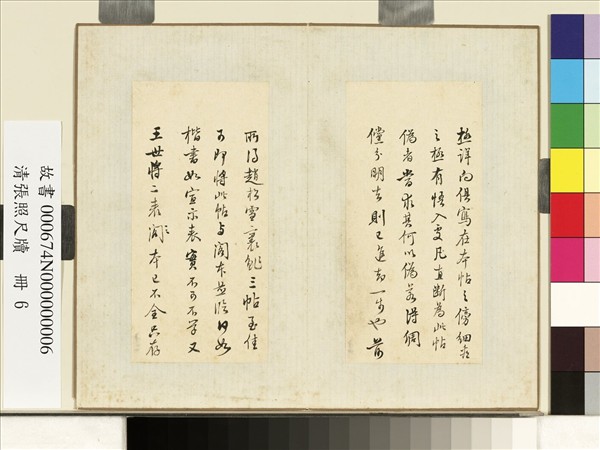 極詳内俱寫在本帖之傍細看
之極有悟入處凡直斷為此帖
偽者嘗求其何以偽若得個
儻分明者則又進却一步也前
所得趙松雪裹鮓三帖至佳
可即將此帖與閣本並臨日如
楷書如宣示表實不可不學又
王世將二表閣本已不全只存
故書 000674N000000006
清張照尺牘 冊 6